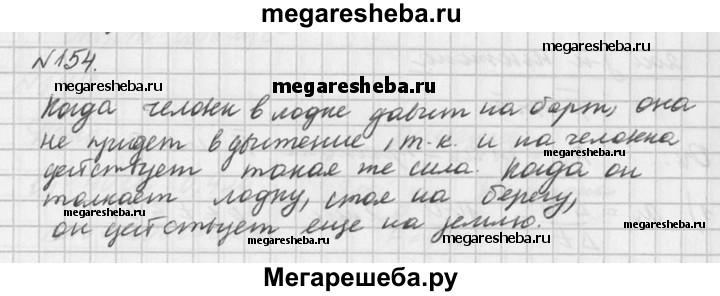 megaresheba.ru
№154.
megaresheba.ru
megaresheba.ru
Когда человек в лодке давит на борт, она
не придет в движение, т.к. и на человека
megaresheba.ru
megaresheba.ru
действует такая же сила. Когда он
толкает лодку, стоя на берегу,
megaresheba.ru
megaresheba.ru
он действует еще на землю.
megaresheba.ru
megaresheba.ru
Мегарешеба.ру